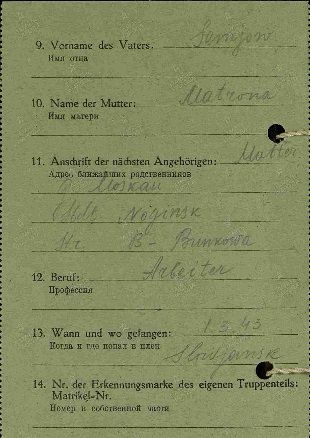 9. Vorname des Vaters: Semjon
Имя отца
10. Name der Mutter: Matrona
Имя матери
11. Anschrift der nächsten Angehörigen: Mutter
Адрес ближайших родственников
G. Moskau
Noginsk
Str. B- Bunkowa
12. Beruf: Arbeiter
Профессия
13. Wann und wo gefangen: 1.3.43
Когда и где попал в плен
Slawjansk
14. Nr. der Erkennungsmarke des eigenen Truppenteils:
Matrikel-Nr.
Номер в собственной части